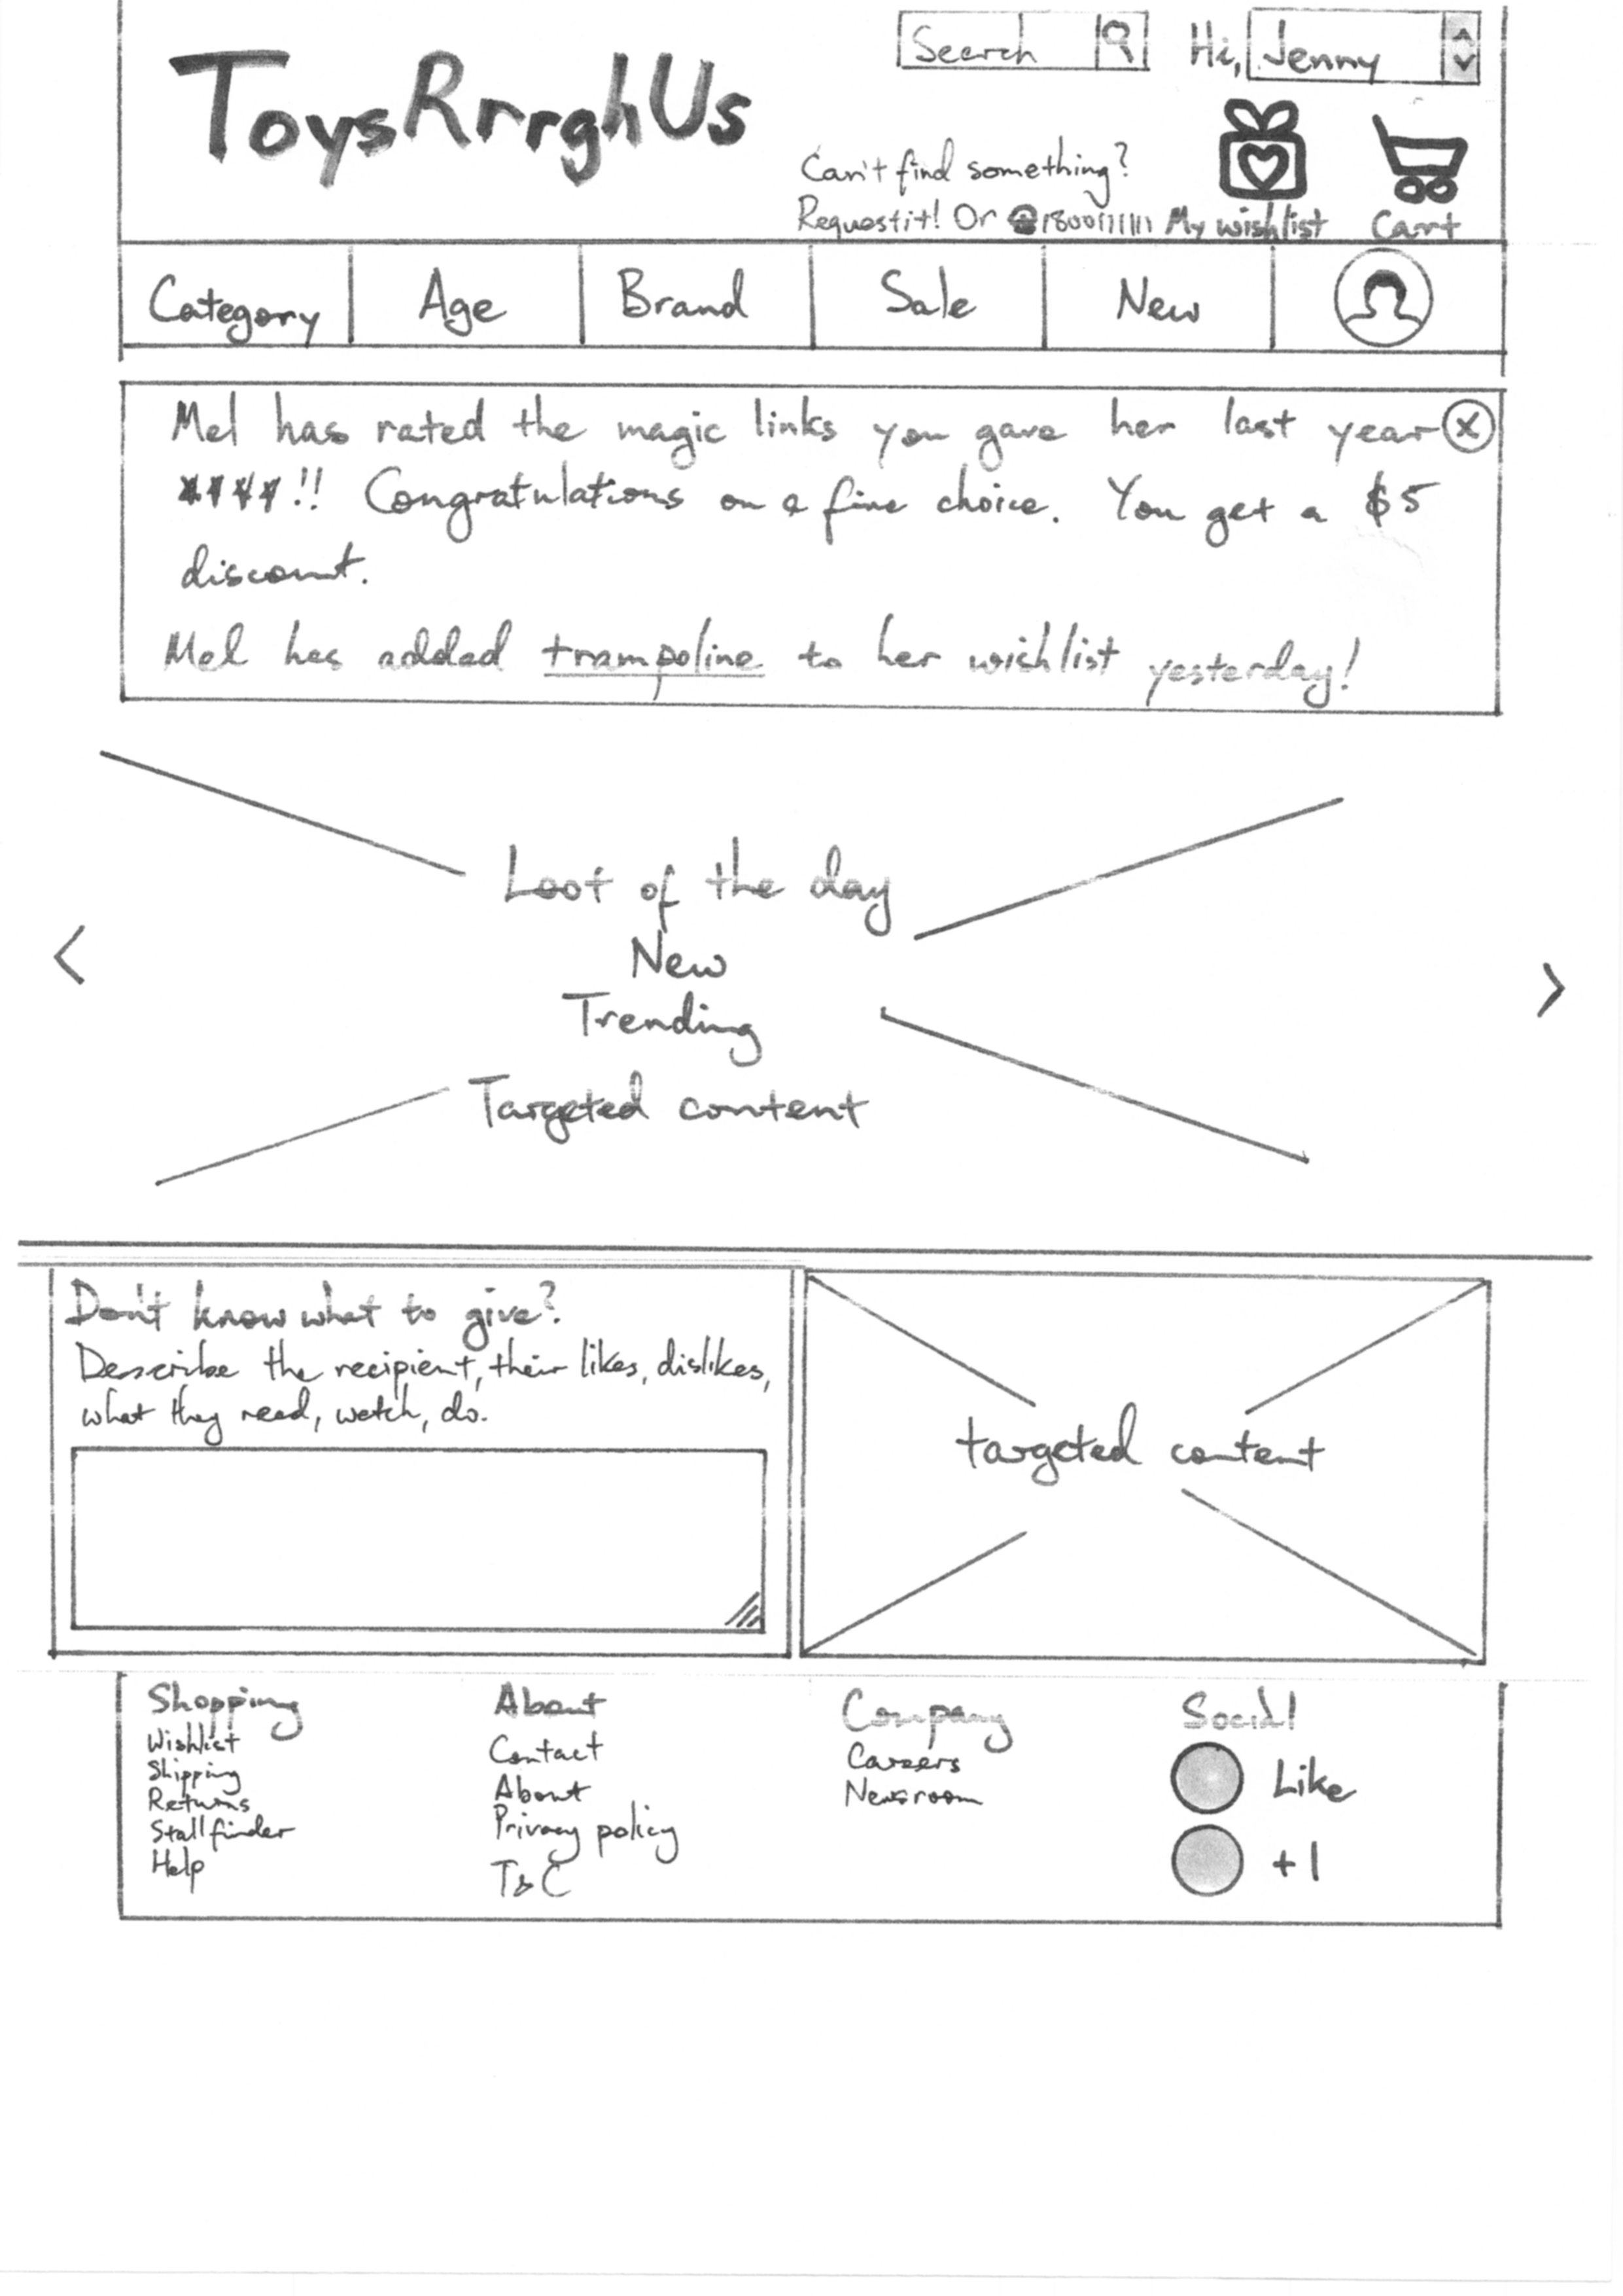 Search
Hi, Jenny
ToysRrrghUs
Can't find something?
Request it! Or ☎1800111111
My wishlist
Cart
Category
Age
Brand
Sale
New
Mel has rated the magic links you gave her last year
★★★★!! Congratulations on a fine choice. You get a $5
discount.
Mel has added trampoline to her wishlist yesterday!
<
Loot of the day
New
Trending
Targeted content
>
Don't know what to give?
Describe the recipient, their likes, dislikes,
what they read, watch, do.
targeted content
Shopping
Wishlist
Shipping
Returns
Stallfinder
Help
About
Contact
About
Privacy policy
T&C
Company
Careers
Newsroom
Social
Like
+1